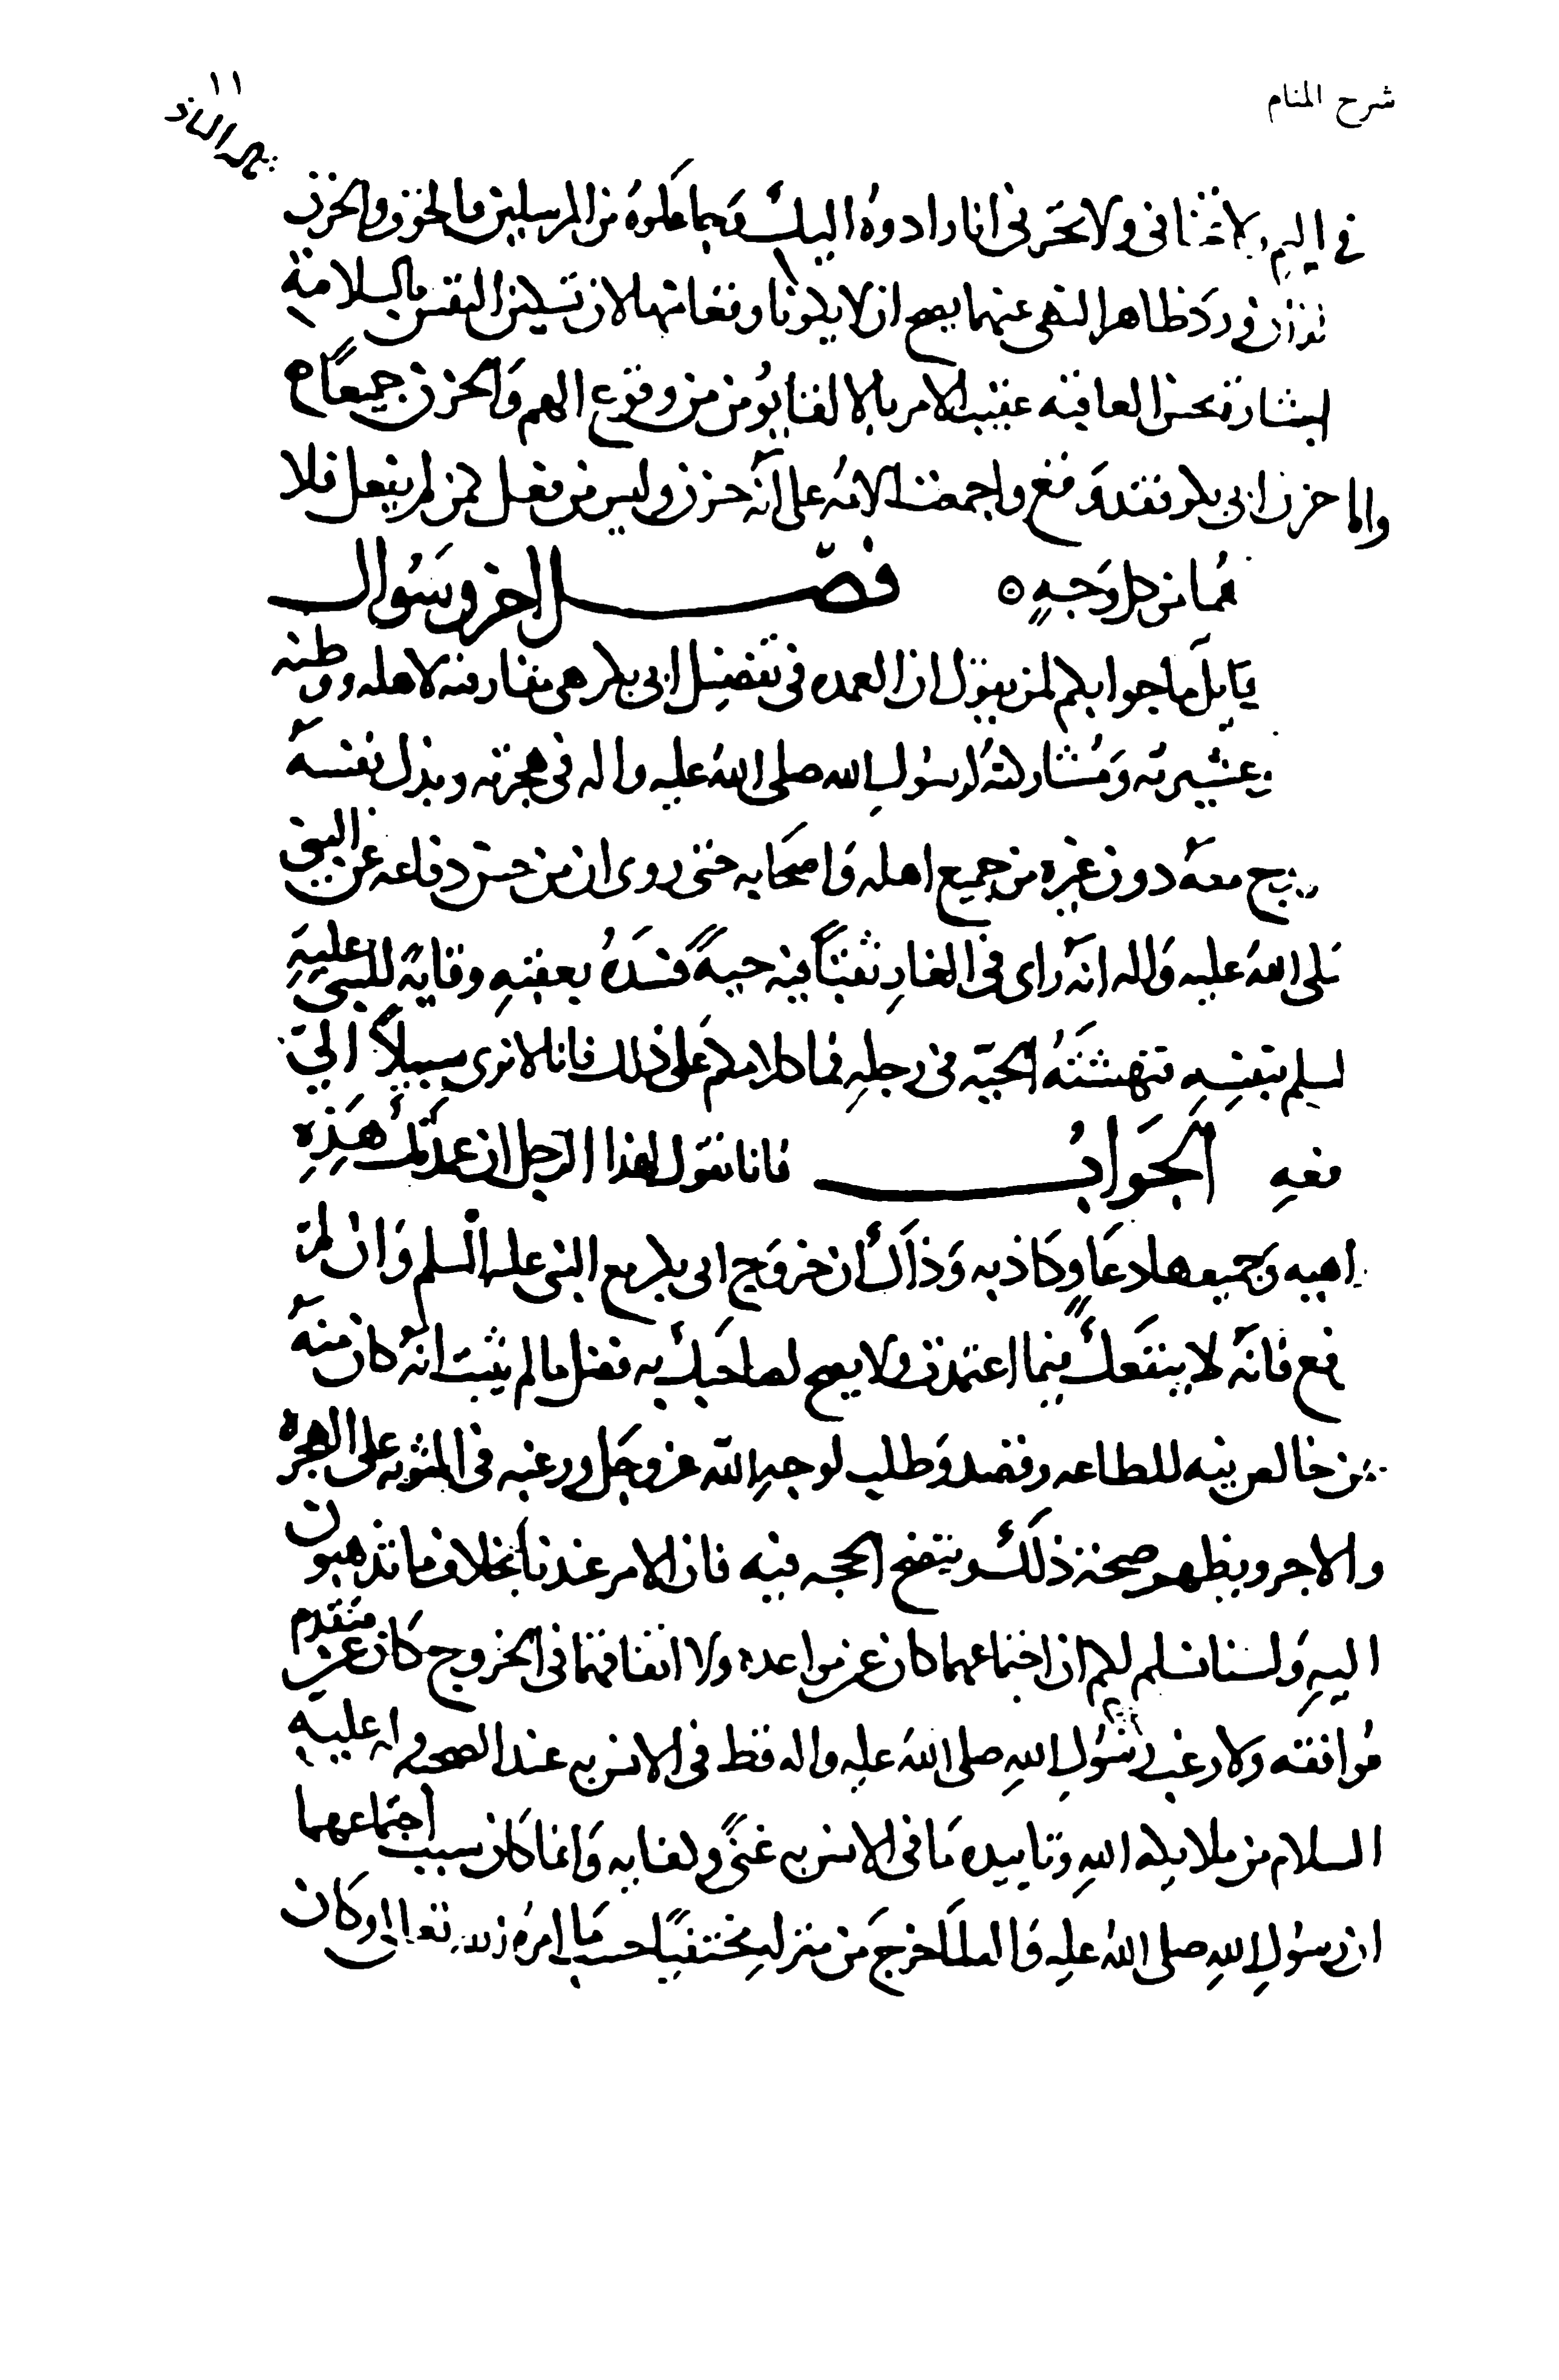 شرح المنام
١١
في اليم ولا تخافي ولا تحزني انا رادوه اليك وجاعلوه من المرسلين فالخوف والحزن
وان ورد ظاهر النهي عنهما يصح ان لا يكونا وقعا منها لان تسكين النفس بالسلامة
لبشارة بحسن العاقبه عقيب الامر بالالقا يؤمن من وقوع الهم والحزن جميعًا
واما حزن ابي بكر فقد وقع واجمعت الامه على انه حزن وليس من فعل كمن لم يفعل فلا
هما من كل وجهٍ ه فصــل اخر وسؤال
قايل ما جوابكم لمن يقول ان العمده في تفضيل ابي بكر هي مفارقته لاهله ووطنه
وعشيرته ومشاركته لرسول الله صلى الله عليه واله في هجرته وبذل نفسه
معه دون غيره من جميع اهله واصحابه حتى روى ان من حسن دفاعه عن النبي
صلى الله عليه واله انه راى في الغار ثقبًا فيه حيةً فسده بعقبهِ وقايةً للنبي عليهِ
لسلم بنفسِه فنهشته الحيّه في رجلهِ فما كلامكم على ذلك فانا لا نرى سبيلاً الى
دفعهِ الجوابـــ فانا نقول لهذا الرجل ان عمدتك هذهِ
واهيه وجميعها دعاوٍ كاذبه وذاك ان خروج ابى بكر مع النبى عليه السلم وان لم
يقع فانه لا ينفعك فيما اعتمدت ولا يصح لصاحبك به فضل ما لم يثبت انه كان منه
عن خالص نيه للطاعه وقصد وطلب لوجه الله عز وجل ورغبه في المثوبه على الهجره
والاجر ويظهر صحة ذلك ويتضح الحجه فيه فان الامر عندنا بخلاف ما تذهبون
اليهِ ولسنا نسلم لكم ان اجتماعهما كان عن مواعده ولا اتفاقهما في الخروج كان عن متقدم
موافقته ولا رغب رسول اللهِ صلى الله عليه واله قط في الانس به عند الصحه وله عليه
السلام من ملايكه اللهِ وتاييده ما في الانس به غنىً وكفايه وانما كان سبب اجتماعهما
ان رسول اللهِ صلى الله عليه واله لما خرج من منزله مختفيًا حسب ما امره الله تعالى وكان